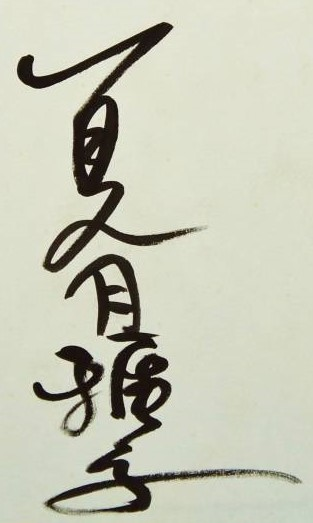 夏目雅子